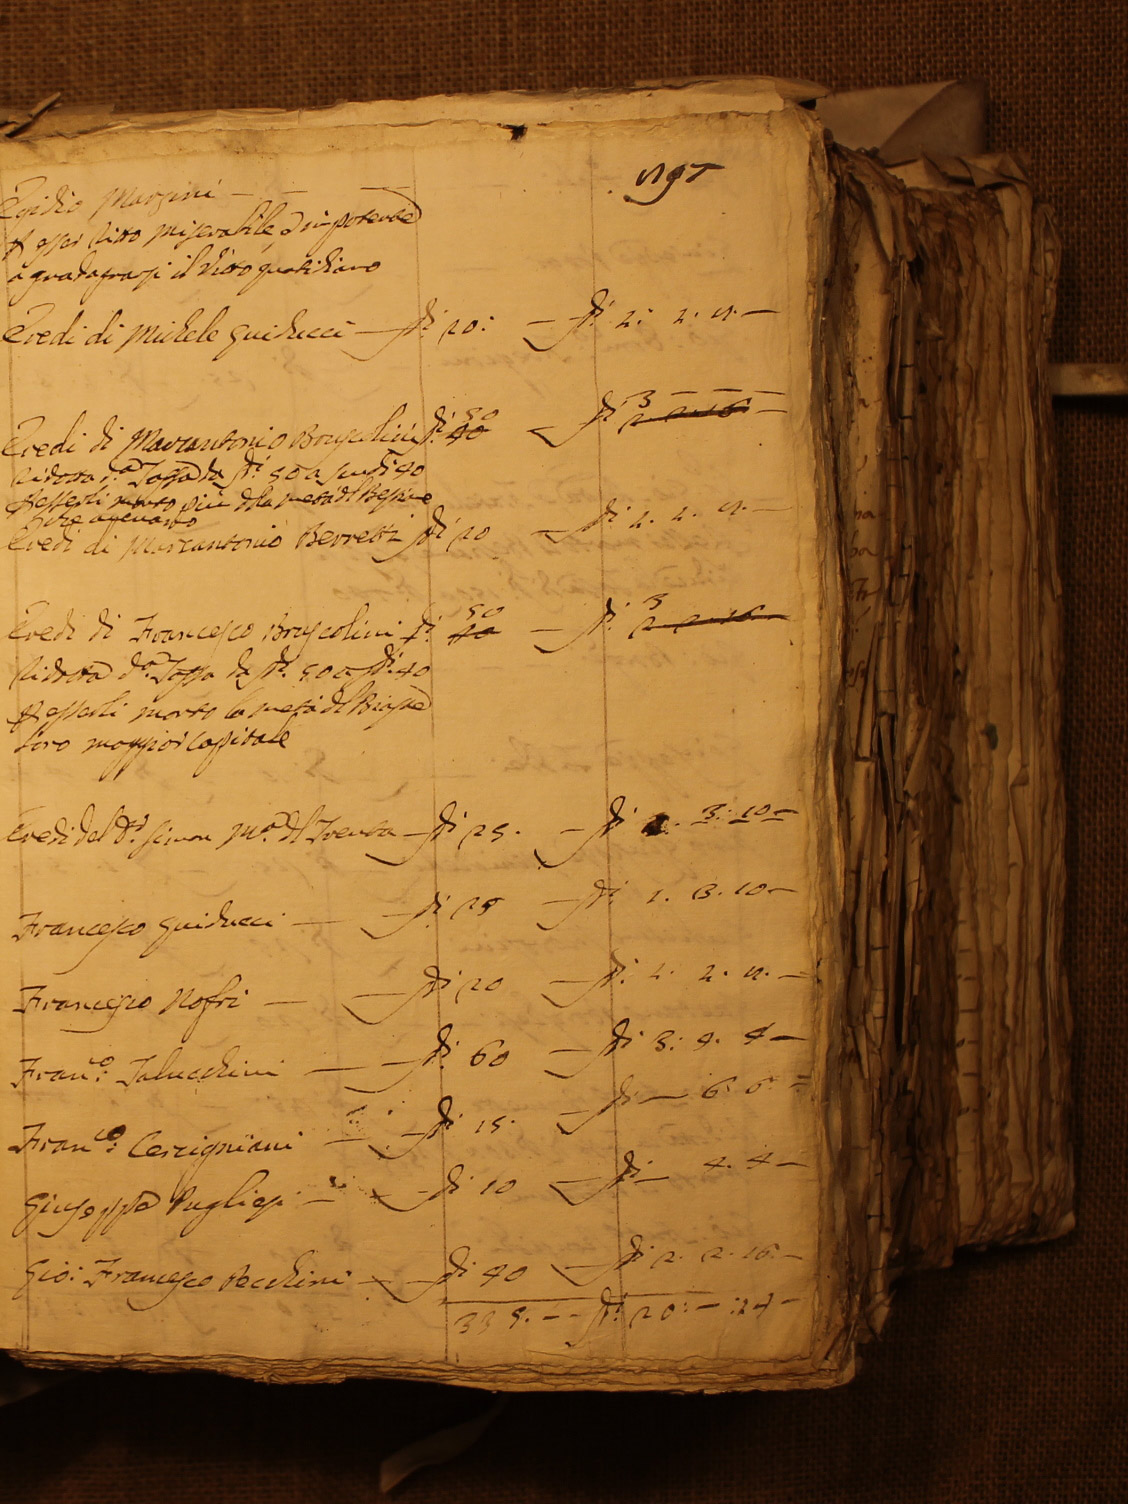 197
Egidio Marsini —
P esser Vitto miserabile, et impotente
a guadagnarsi il Vitto quotidiano
Eredi di Michele Guiducci — di 20: — di 1: 2. 11. —
Eredi di Marcantonio Bruscolini di 50 40 — di 3 — — — 2 2. 16 —
Ridotta d.a Tassa da di 50 a scudi 40
P essersi morto più della metà del Bestiame
che avevano
Eredi di Marcantonio Berretti di 20 — di 1. 2. 11. —
Eredi di Francesco Bruscolini di 50 40 — di 3 2 2. 16 —
Ridotta d.a Tassa da di 50 a di 40
P essersli morto la metà del
loro maggior Capitale
Eredi del D.r Simon M.a del — di 25. — di 1. 3. 10 —
Francesco Guiducci — di 25 — di 1. 3. 10 —
Francesco Nofri — di 20 — di 1. 2. 11. —
Fran.co Talucchini — di 60 — di 3: 4. 4 —
Fran.co Cercigniani — di 15. — di — 6. 6. —
Giuseppe Pugliesi — di 10 — di — 4. 4 —
Gio: Francesco Pecchini — di 40 — di 2. 2. 16. —
335. — di 20: — 14 —